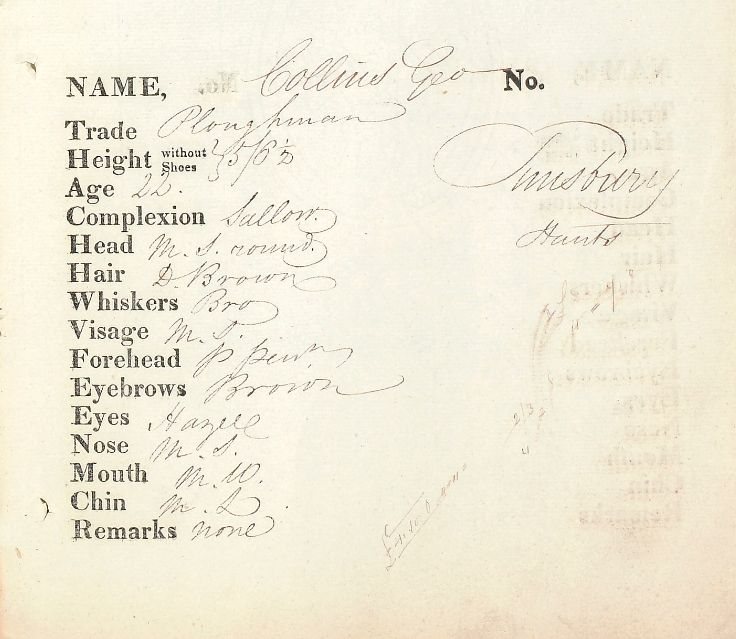 NAME, Collins Geo No.
Trade Ploughman
Height without Shoes 5/6½
Age 22.
Complexion Sallow.
Head M. S. round.
Hair D. Brown
Whiskers Bro
Visage M. S.
Forehead p
Eyebrows Brown
Eyes Hazel
Nose M. S.
Mouth M. W.
Chin M. L
Remarks none
Timsbury
Hants